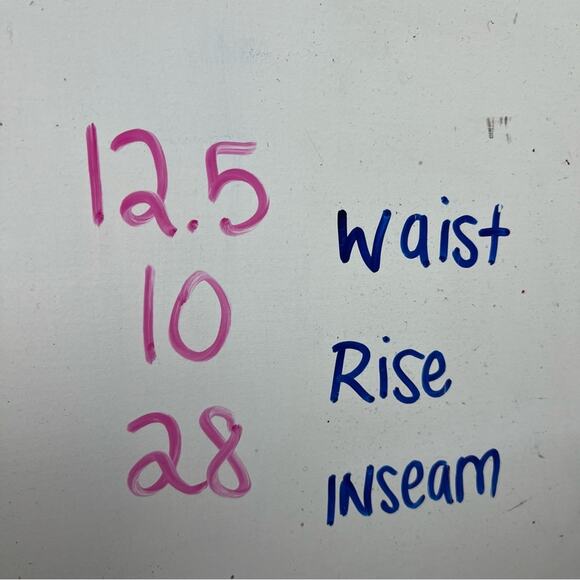 12.5 Waist
10 Rise
28 INseam